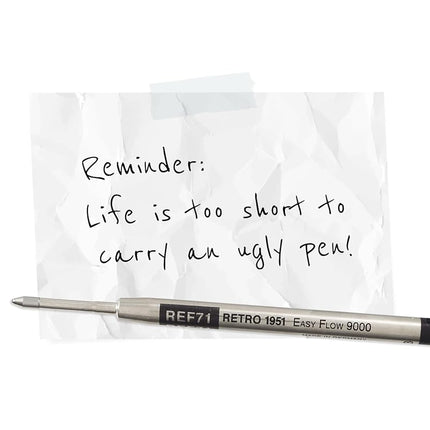 Reminder:
Life is too short to
carry an ugly pen!
REF71 RETRO 1951 EASY FLOW 9000